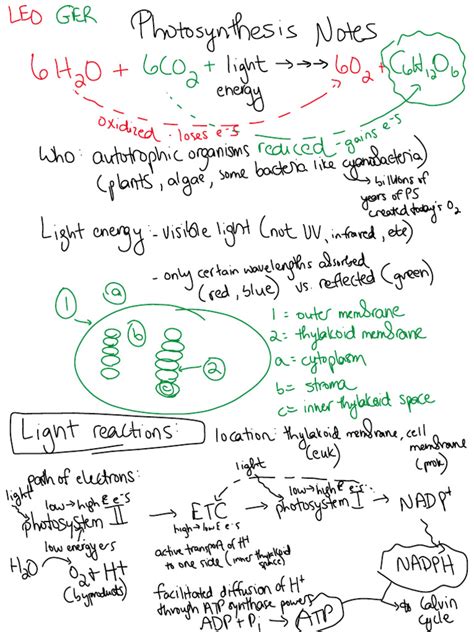 LEO GER
Photosynthesis Notes
6H₂O + 6CO₂ + light energy →→→ 6O₂ + C₆H₁₂O₆
oxidized - loses e⁻s
reduced - gains e⁻s
Who: autotrophic organisms
(plants, algae, some bacteria like cyanobacteria)
↳ billions of
years of PS
created today's O₂
Light energy: - visible light (not UV, infrared, etc)
- only certain wavelengths absorbed
(red, blue) vs. reflected (green)
1
a
b
2
c
1 = outer membrane
2 = thylakoid membrane
a = cytoplasm
b = stroma
c = inner thylakoid space
Light reactions:
location: thylakoid membrane, cell
(euk)
membrane
(prok)
path of electrons:
light
low → high E e⁻s
photosystem II
low energy e⁻s
H₂O → O₂ + H⁺
(byproducts)
ETC
high → low E e⁻s
active transport of H⁺
to one side (inner thylakoid
space)
light
low → high E e⁻s
photosystem I
NADP⁺
NADPH
facilitated diffusion of H⁺
through ATP synthase powers
ADP + Pi → ATP
Calvin
cycle